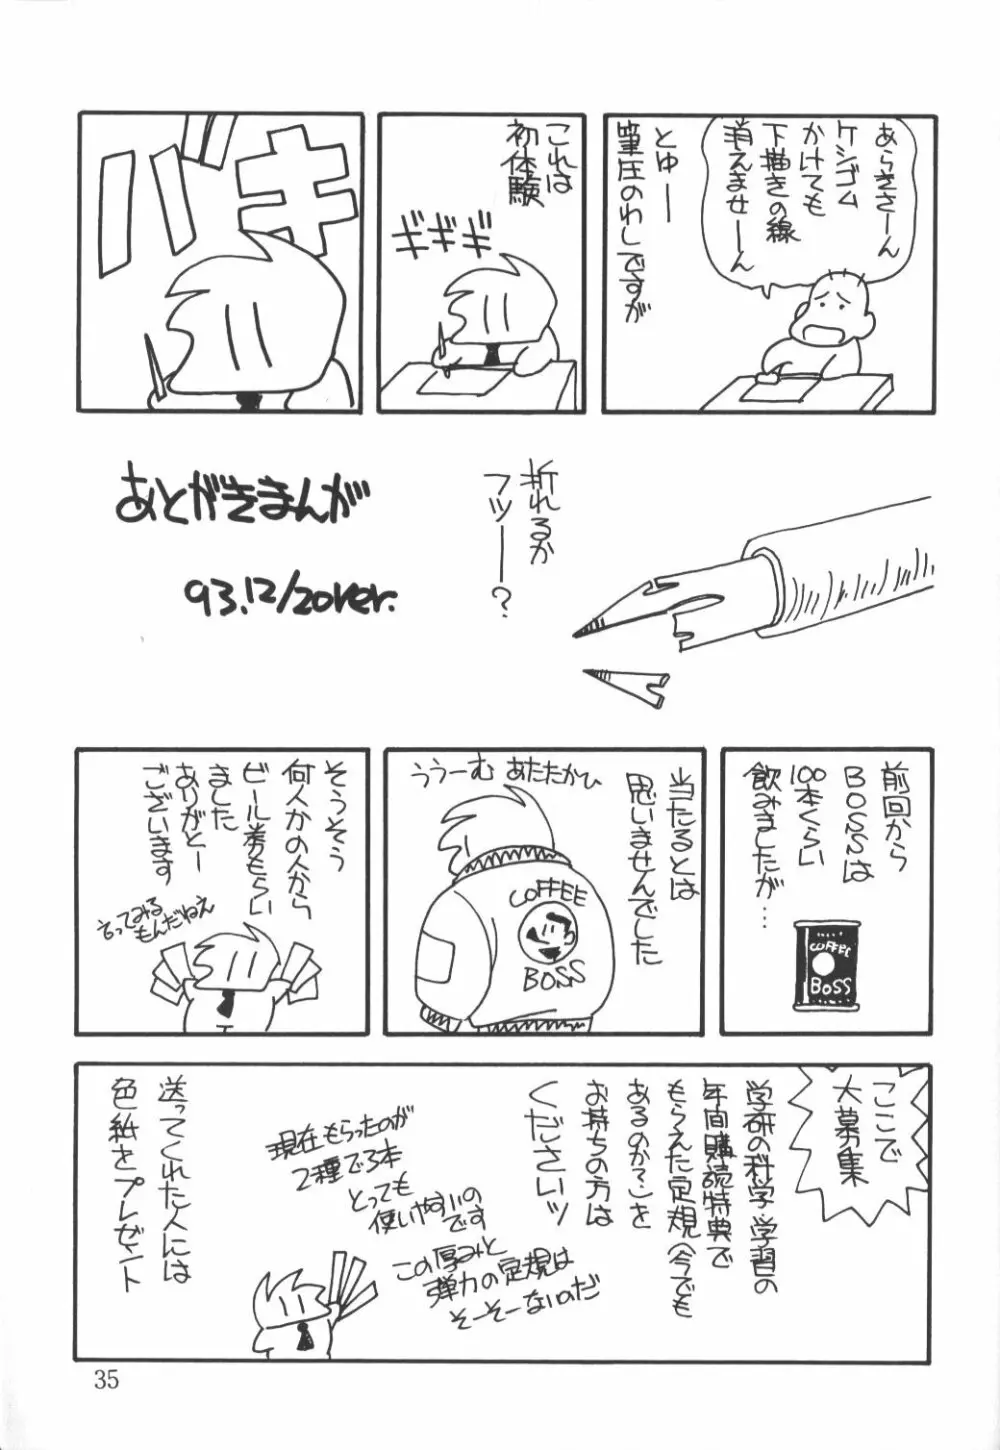 あらきさーん
ケシゴム
かけても
下描きの線
消えませーん
とゆー
筆圧のわしですが
これは
初体験
ギギギ
バキ
折れるか
フツー？
あとがきまんが
93.12/20ver.
前回から
BOSSは
100本くらい
飲みましたが…
COFFEE
BOSS
当たるとは
思いませんでした
ううーむ あたたかひ
COFFEE
BOSS
そうそう
何人かの人から
ビール券もらい
ました
ありがとー
ございます
言ってみる
もんだねえ
ここで
大募集
学研の科学・学習の
年間購読特典で
もらえた定規（今でも
あるのか？）を
お持ちの方は
くださいッ
現在もらったのが
2種で3本
とっても
使いやすいの
です
この厚みと
弾力の定規は
そーそーないのだ
送ってくれた人には
色紙をプレゼント
35